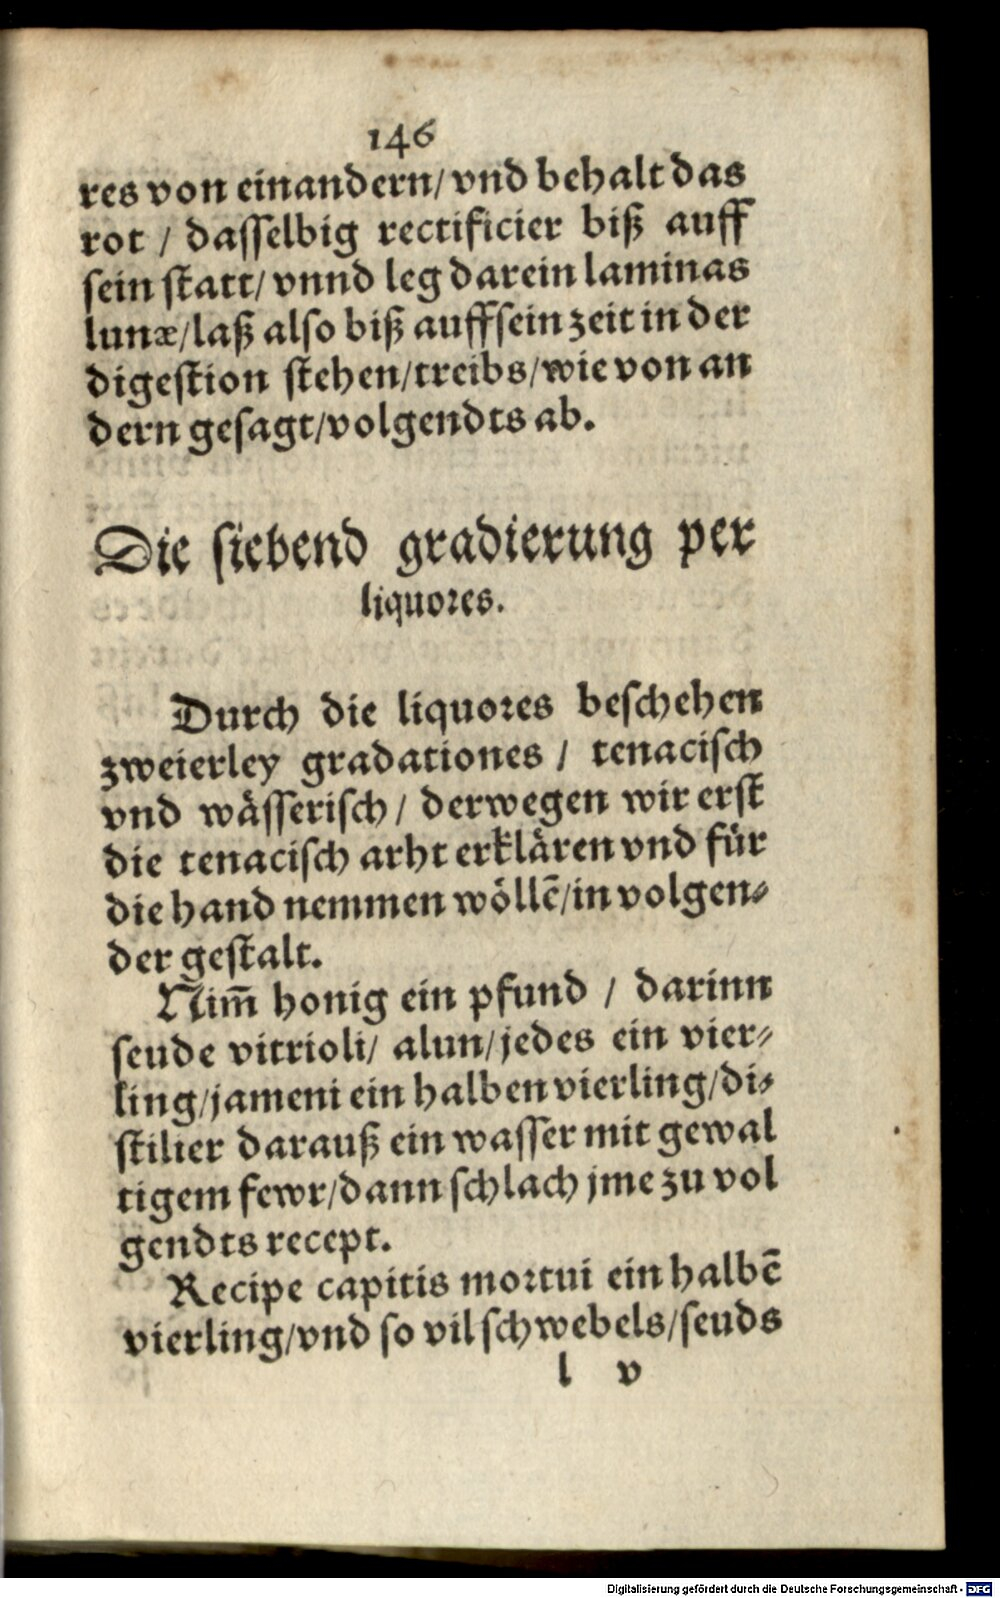 146
res von einandern/ vnd behalt das
rot / dasſelbig rectificier biß auff
ſein ſtatt/ vnnd leg darein laminas
lunæ/ laß alſo biß auff ſein zeit in der
digeſtion ſtehen/ treibs/ wie von an
dern geſagt/ volgendts ab.
Die ſiebend gradierung per
liquores.
Durch die liquores beſchehen
zweierley gradationes / tenaciſch
vnd wäſſeriſch/ derwegen wir erſt
die tenaciſch arht erklären vnd für
die hand nemmen wöllē/ in volgen⸗
der geſtalt.
Nim̄ honig ein pfund / darinn
ſeude vitrioli/ alun/ jedes ein vier⸗
ling/ jameni ein halben vierling/ di⸗
ſtilier darauß ein waſſer mit gewal
tigem fewr/ dann ſchlach jme zu vol
gendts recept.
Recipe capitis mortui ein halbē
vierling/ vnd ſo vil ſchwebels/ ſeuds
l v
Digitalisierung gefördert durch die Deutsche Forschungsgemeinschaft - DFG